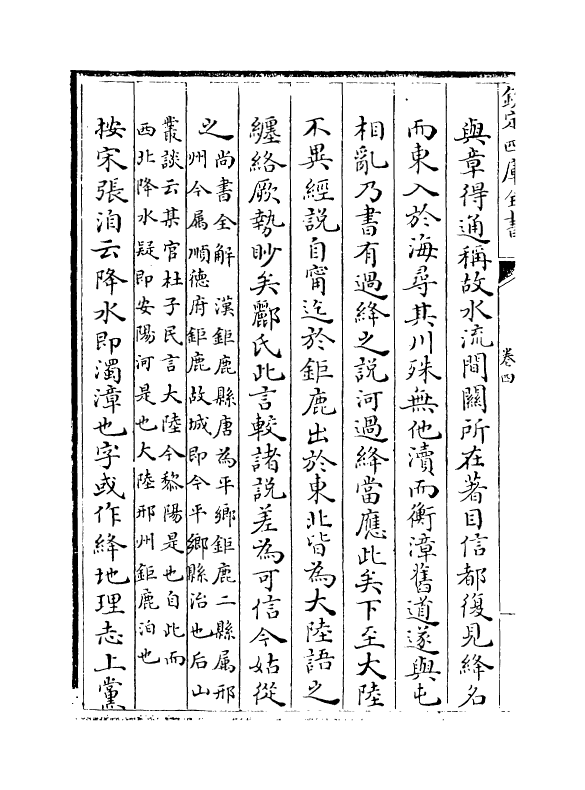 欽定四庫全書
卷四
與章得通稱故水流間關所在著目信都復見絳名
而東入於海尋其川殊無他瀆而衡漳舊道遂與屯
相亂乃書有過絳之說河過絳當應此矣下至大陸
不異經說自甯迄於鉅鹿出於東北皆為大陸語之
纏絡厥勢眇矣酈氏此言較諸說差為可信今姑從
之尚書全解　漢鉅鹿縣唐為平鄉鉅鹿二縣属邢
州今属順德府鉅鹿故城即今平鄉縣治也后山
叢談云某官杜子民言大陸今黎陽是也自此而
西北降水疑即安陽河是也大陸邢州鉅鹿泊也
按宋張洎云降水即濁漳也字或作絳地理志上黨